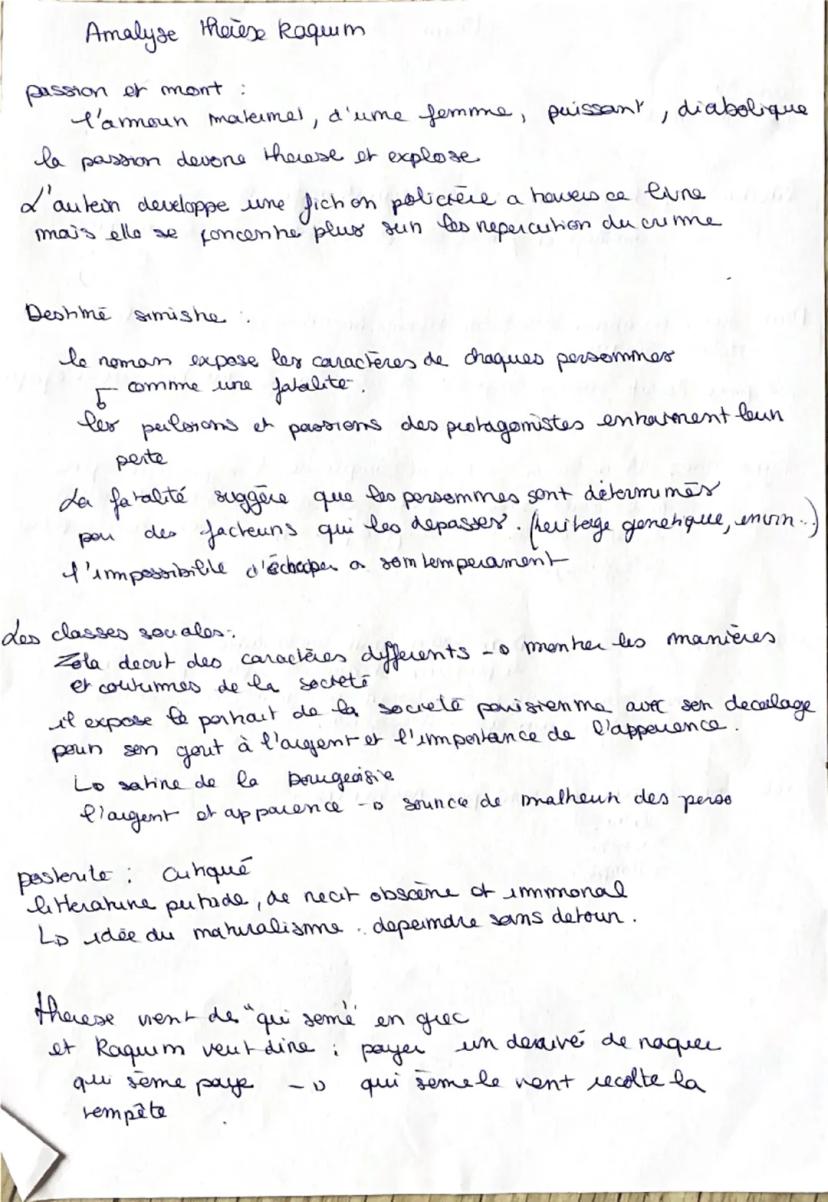 Analyse thérèse Raquin
passion et mort :
l'amour maternel, d'une femme, puissant, diabolique
la passion devore therese et explose
L'auteur developpe une fiction policière a travers ce livre
mais elle se concentre plus sur les repercution du crime
Destiné sinistre :
le roman expose les caractères de chaques personnes
comme une fatalité.
les pulsions et passions des protagonistes entrainent leur
perte
La fatalité suggère que les personnes sont déterminés
par des facteurs qui les depasses. (heritage genetique, envir..)
l'impossibilité d'échaper a son temperament
Les classes sociales :
Zola decrit des caractères differents → montrer les manières
et coutumes de la société
il expose le portrait de la societé parisienne avec son decalage
pour son gout à l'argent et l'importance de l'apparence.
↳ satire de la bourgeoisie
l'argent et apparence → source de malheur des perso
posterite : Critiqué
litterature putride, de recit obscène et immoral
↳ idée du naturalisme . depeindre sans detour.
therese vient de "qui semé" en grec
et Raquin veut dire : payer un derivé de raquer
qui sème paye → qui sème le vent recolte la
tempête